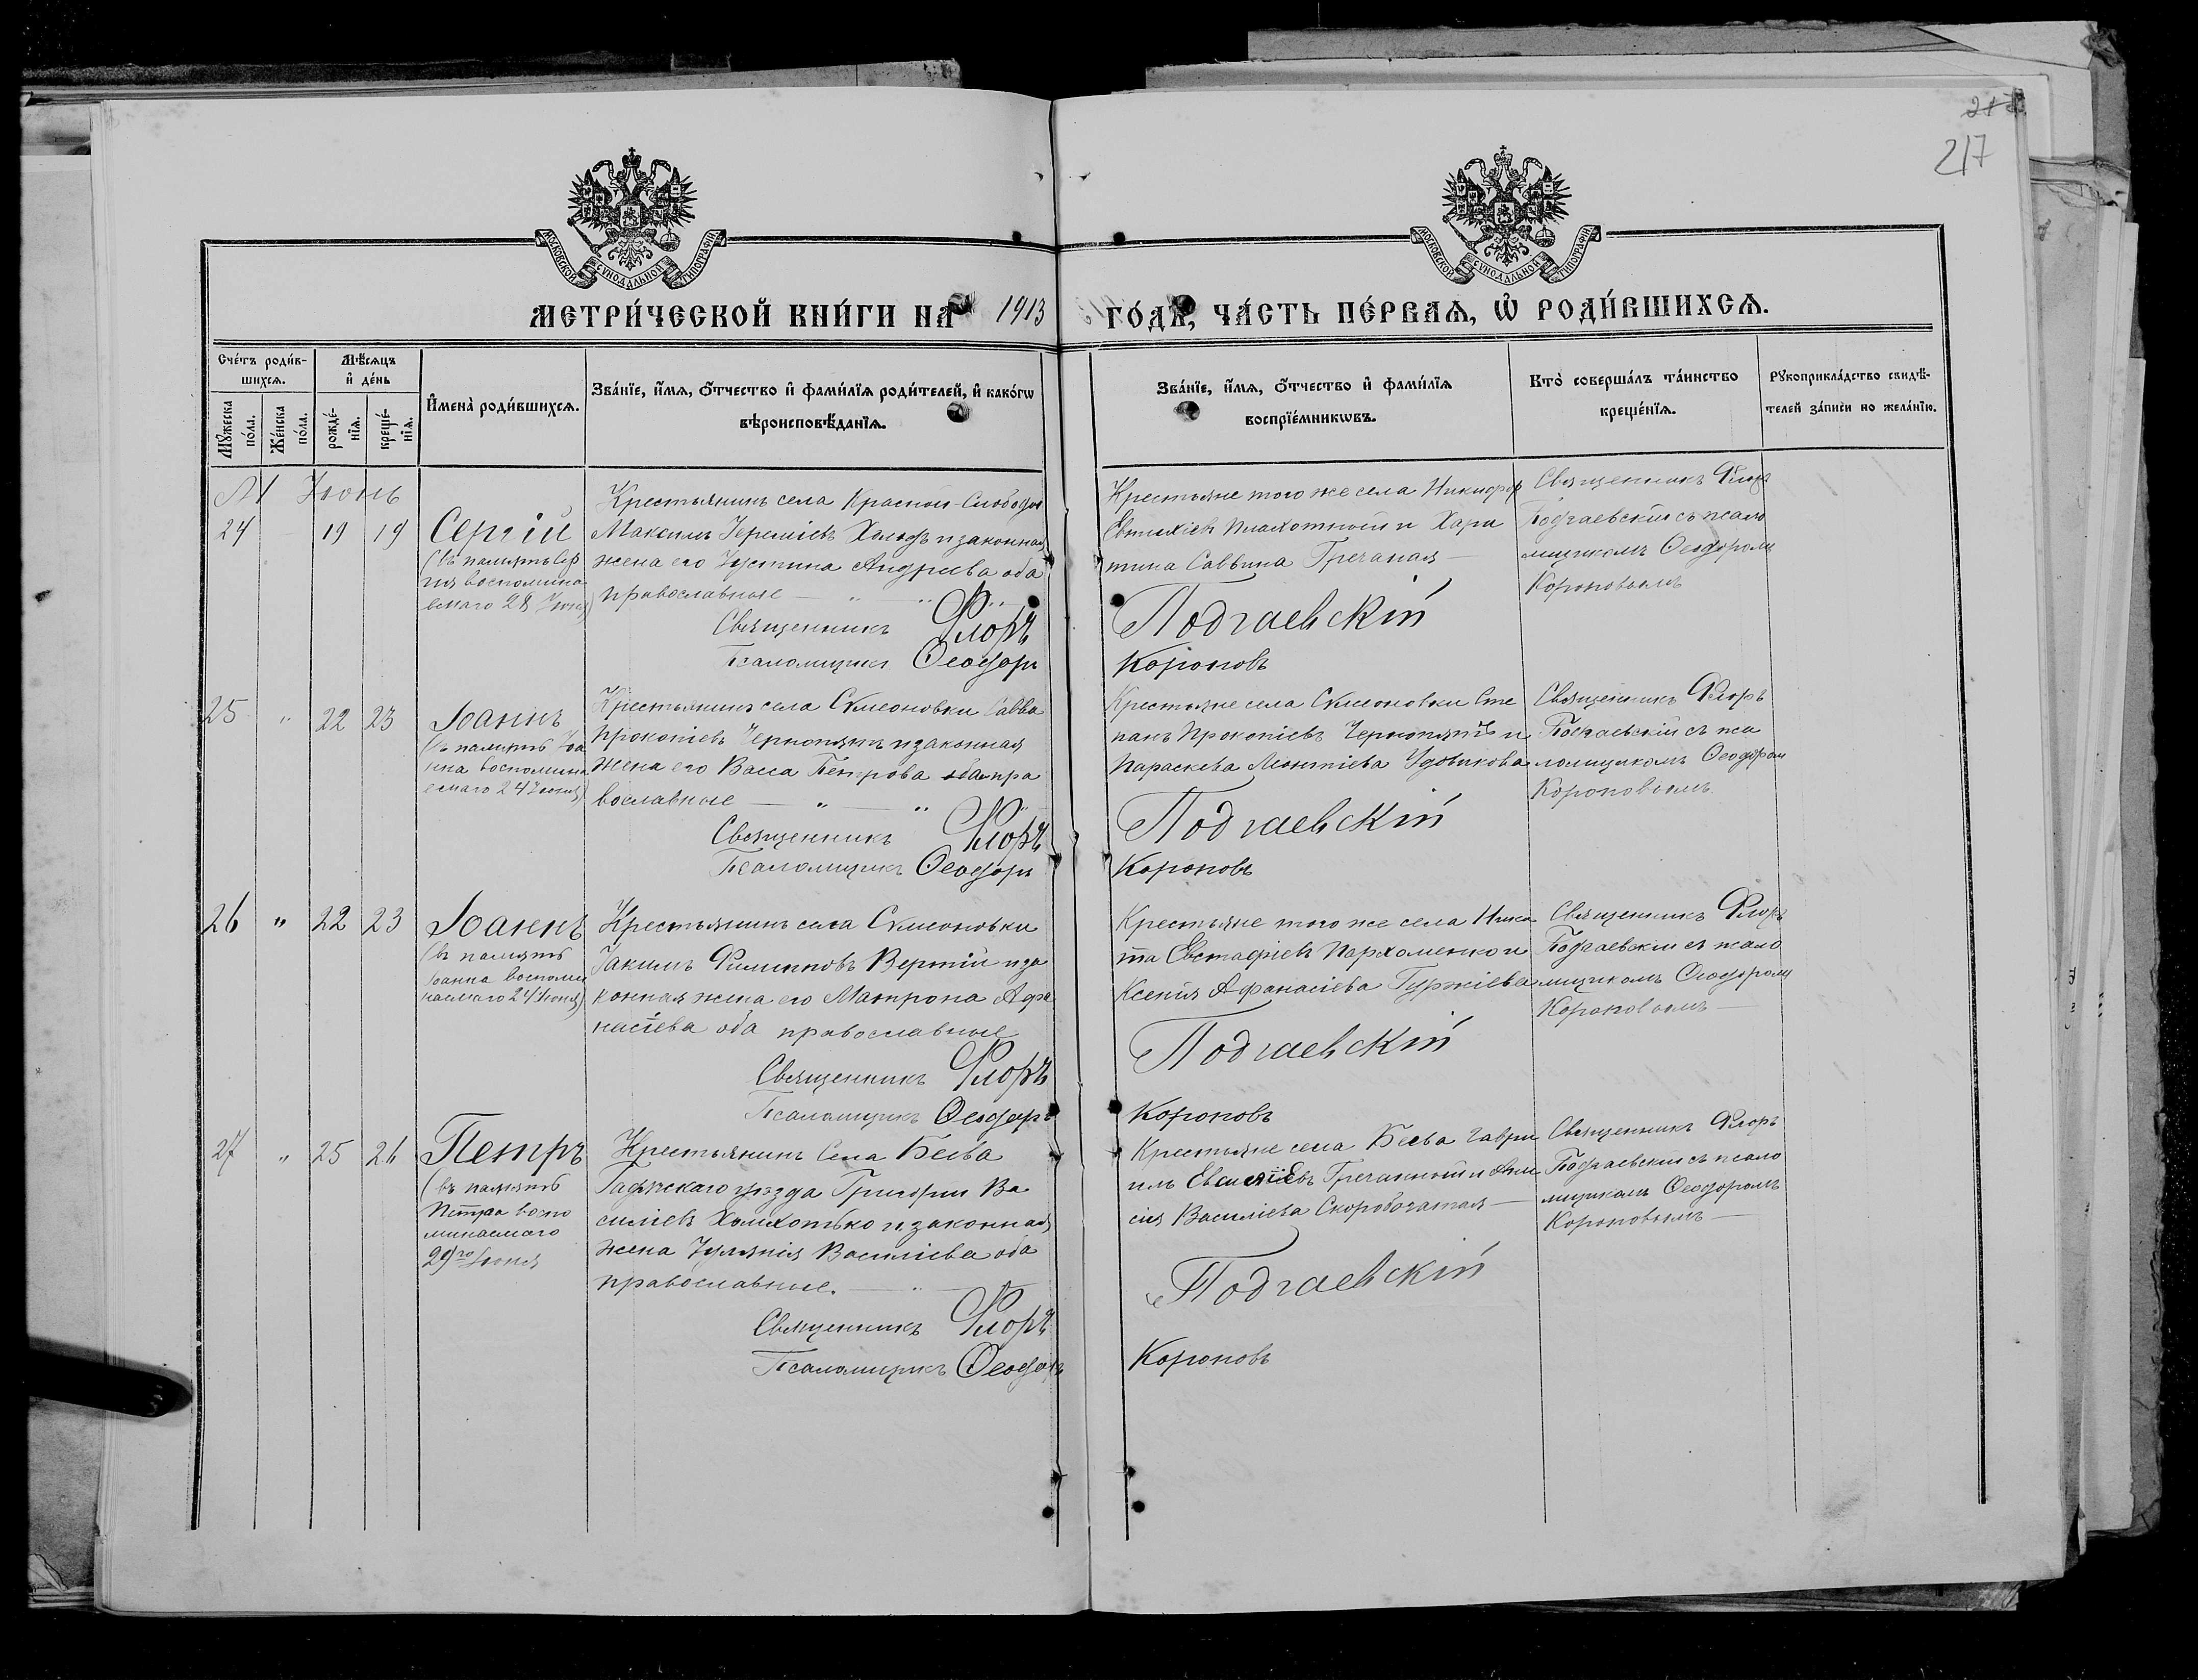 218
217
МОСКОВСКОЙ СУНОДАЛЬНОЙ ТИПОГРАФІИ
МОСКОВСКОЙ СУНОДАЛЬНОЙ ТИПОГРАФІИ
МЕТРИ́ЧЕСКОЙ КНИ́ГИ НА 1913 ГО́ДЪ, ЧА́СТЬ ПЕ́РВАѦ, Ѿ РОДИ́ВШИХСѦ.
Сче́тъ роди́в-
шихсѧ.
Мꙋ́жеска по́ла.
Же́нска по́ла.
Мѣ́сѧцъ
и҆ де́нь
рожде́-
нїѧ.
креще́-
нїѧ.
И҆мена̀ роди́вшихсѧ.
Зва́нїе, и҆́мѧ, ѻ҆́тчество и҆ фами́лїѧ роди́телей, и҆ како́гѡ
вѣроисповѣ́данїѧ.
Зва́нїе, и҆́мѧ, ѻ҆́тчество и҆ фами́лїѧ
воспрїе́мникѡвъ.
Кто̀ соверша́лъ та́инство
креще́нїѧ.
Рꙋкоприкла́дство свидѣ́-
телей за́писи по жела́нїю.
М Іюнь
24 19 19
Сергій
(въ память Сер
гія воспомина
емаго 28 Іюня)
Крестьянинъ села Красной Слободы
Максимъ Іереміевъ Холодъ и законная
жена его Іустина Андреева оба
православные — „ „
Священникъ Флоръ
Псаломщикъ Ѳеодоръ
Крестьяне того же села Никифор
Евтихіевъ Плахотный и Хари
тина Саввина Гречаная —
Подгаевскій
Короновъ
Священникъ Флоръ
Подгаевскій съ псало
мщикомъ Ѳеодоромъ
Короновымъ
25 „ 22 23
Іоаннъ
(въ память Іоа
нна воспомина
емаго 24 Іюня)
Крестьянинъ села Сѵмеоновки Савва
Прокопіевъ Чернопятъ и законная
жена его Васса Петрова оба пра
вославные — „ — „ „
Священникъ Флоръ
Псаломщикъ Ѳеодоръ
Крестьяне села Сѵмеоновки Сте
панъ Прокопіевъ Чернопятъ и
Параскева Удовикова
Подгаевскій
Короновъ
Священникъ Флоръ
Подгаевскій съ пса
ломщикомъ Ѳеодором
Короновымъ.
26 „ 22 23
Іоаннъ
(въ память
Іоанна воспоми
наемаго 24 Іюня)
Крестьянинъ села Сѵмеоновки
Іакимъ Филипповъ Вертій и за
конная жена его Матрона Афа
насіева оба православные
Священникъ Флоръ
Псаломщикъ Ѳеодоръ
Крестьяне того же села Ники
та Евстафіевъ Пархоменко и
Ксенія Афанасіева Гуржіева
Подгаевскій
Короновъ
Священникъ Флоръ
Подгаевскій съ псало
мщикомъ Ѳеодоромъ
Короновымъ —
27 „ 25 26
Петръ
(въ память
Петра воспо
минаемаго
29го Іюня
Крестьянинъ Села Беева
Гадячскаго уѣзда Григорій Ва
силіевъ и законная
жена Іуліанія Василіева оба
православные. — „ —
Священникъ Флоръ
Псаломщикъ Ѳеодоръ
Крестьяне села Беева Гаври
илъ Гречаный и
Василіева Скоробогатая —
Подгаевскій
Короновъ
Священникъ Флоръ
Подгаевскій съ псало
мщикомъ Ѳеодоромъ
Короновымъ —